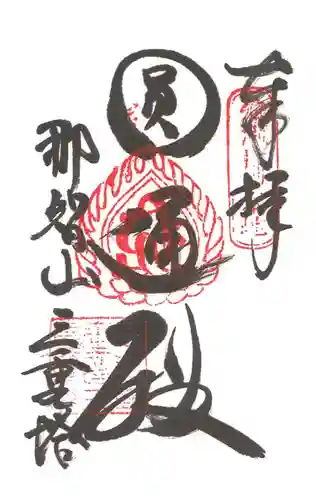 奉拝
圓通殿
那智山
三重塔